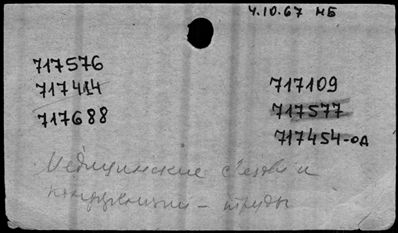 4.10.67 НБ
717576
717414
717688
717109
717577
717454-ОД
Медицинские съезды и
конференции - труды